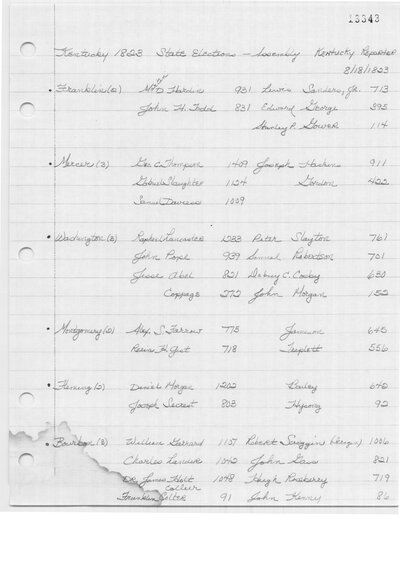 13343
Kentucky 1823 State Elections – Assembly Kentucky Reporter
8/18/1823
• Franklin (2) M. D. Hardin 931 Lewis Sanders, Jr. 713
John H. Todd 831 Edward George 395
Stanley P. Gower 114
• Mercer (3) Geo. C. Thompson 1409 Joseph Haskins 911
Gabriel Slaughter 1124 Gordon 422
Samuel Daveiss 1009
• Washington (3) Raphael Lancaster 1233 Peter Slayton 761
John Pope 939 Samuel Robertson 701
Jesse Abel 821 Dabney C. Cosby 630
Coppage 272 John Morgan 152
• Montgomery (2) Alex. S. Farrow 775 Jameson 645
H. 718 Triplett 556
• Fleming (2) Daniel Morgan 1202 Bailey 640
Joseph Secrest 803 92
• Bourbon (3) William Garrard 1107 Robert Scroggin 1006
Charles 1042 John Gass 821
Dr. James Holt 1048 Hugh 719
Collier
Franklin 91 John Kenny 86